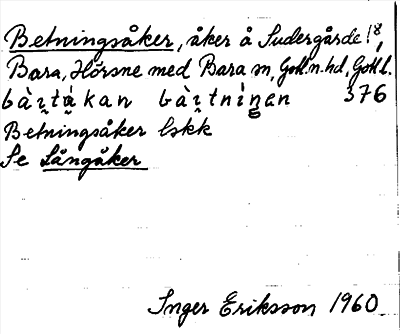 Betningsåker, åker å Sudergårde 1⁸,
Bara, Hörsne med Bara sn, Gotl. n. hd, Gotl. l.
bà̀ɪ̯tákan bàɪ̯tnìŋen 376
Betningsåker lskk
Se Långåker
Inger Eriksson 1960